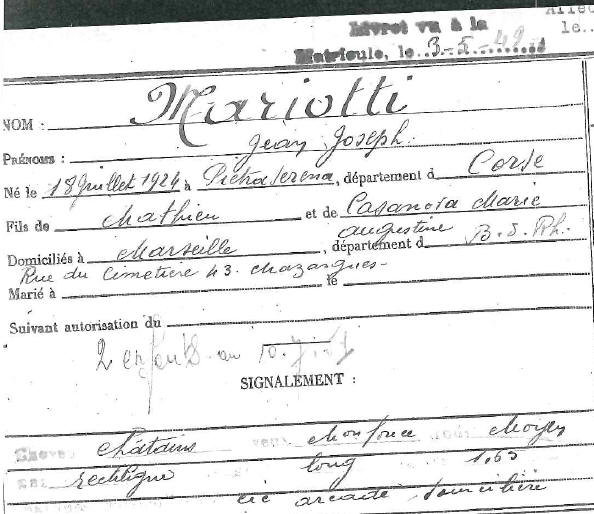 Livret vu à la
Matricule, le 3-5-49
le
NOM : Mariotti
PRÉNOMS : Jean Joseph
Né le 18 Juillet 1924 à Pietraserena, département d Corse
Fils de Mathieu et de Casanova Marie
augustine
Domiciliés à Marseille, département d B. d. Rh.
Rue du Cimetière 43. Mazargues-
Marié à le
Suivant autorisation du
2 enfants au 10.
SIGNALEMENT :
Chatains yeux Mon foncé Moyen
rectiligne long 1,65
cic arcade sourcilière